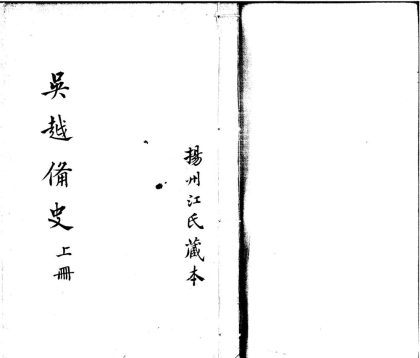 揚州江氏藏本
吳越備史上冊